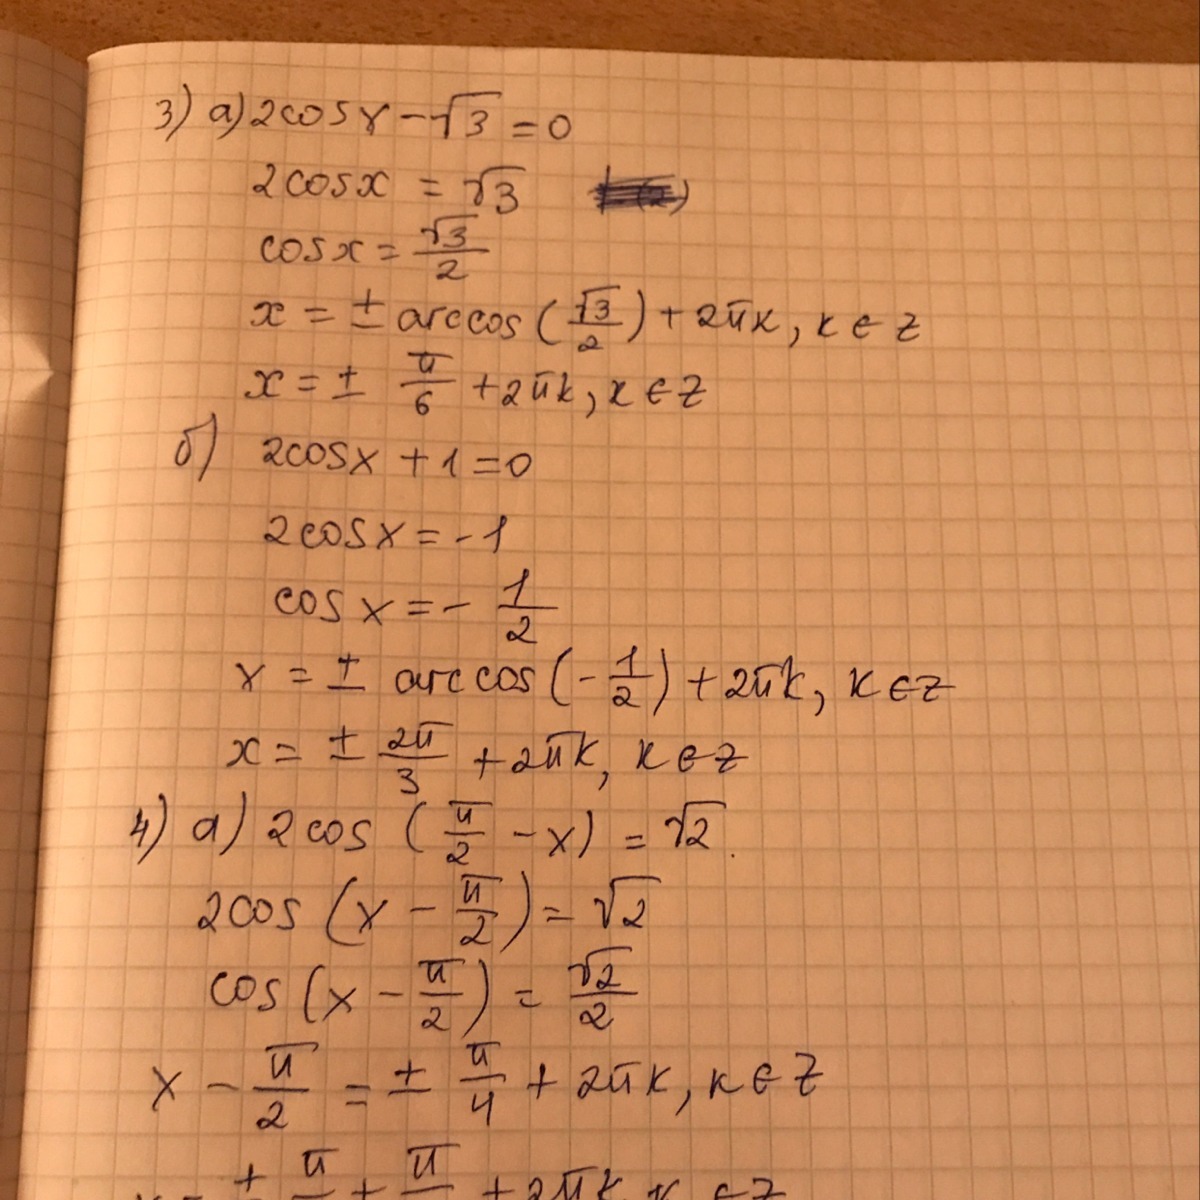 3) а) 2cosx - √3 = 0
2cosx = √3
cosx = √3/2
x = ± arccos(√3/2) + 2πk, k ∈ Z
x = ± π/6 + 2πk, k ∈ Z
б) 2cosx + 1 = 0
2cosx = -1
cosx = - 1/2
x = ± arccos(-1/2) + 2πk, k ∈ Z
x = ± 2π/3 + 2πk, k ∈ Z
4) а) 2cos(π/2 - x) = √2.
2cos(x - π/2) = √2
cos(x - π/2) = √2/2
x - π/2 = ± π/4 + 2πk, k ∈ Z
x = ± π + π + 2πk, k ∈ Z